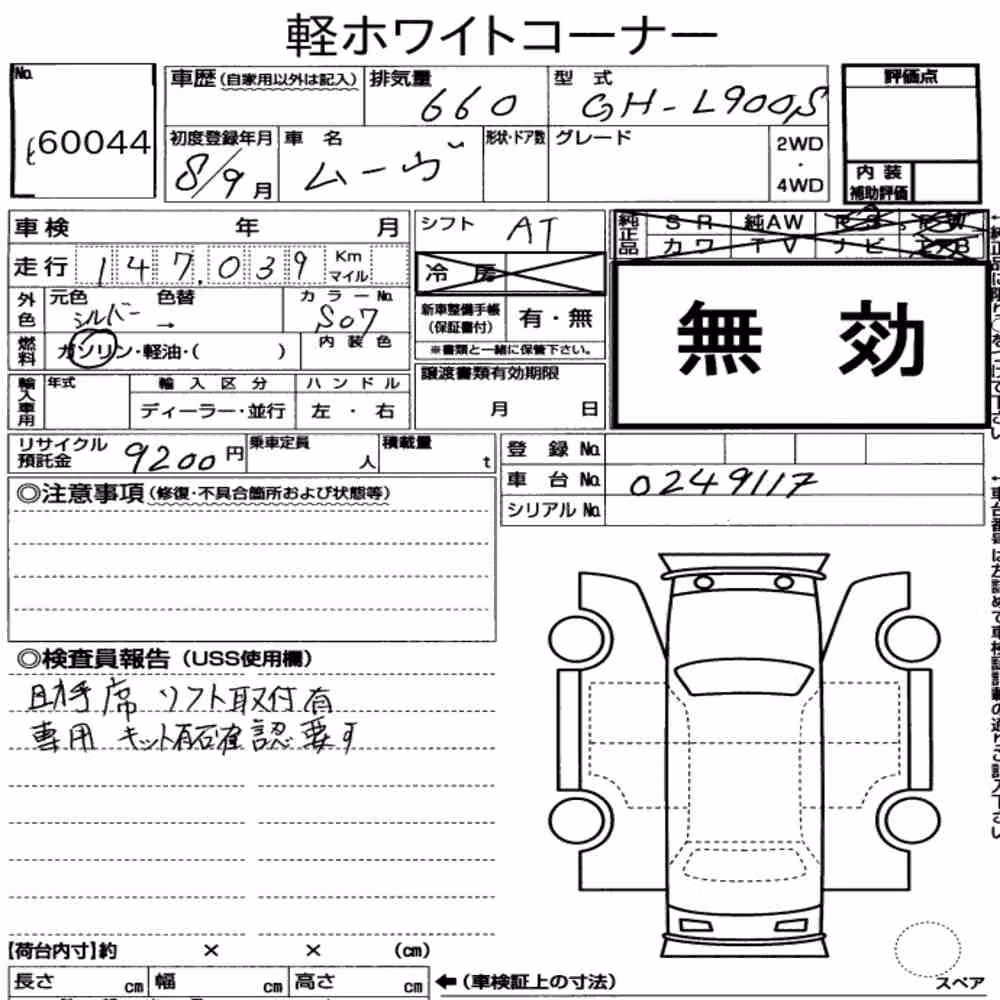 軽ホワイトコーナー
No. 60044
車歴(自家用以外は記入) 排気量 660 型 式 GH-L900S
初度登録年月 8/9月 車 名 ムーヴ 形状・ドア数 グレード 2WD・4WD
評価点
内 装
補助評価
車検 年 月
走行 147,039 Km マイル
外色 元色 シルバー 色替 → カラーNo. S07
燃料 ガソリン・軽油・( ) 内 装 色
輸入車用 年式 輸 入 区 分 ハ ン ド ル
ディーラー・並行 左 ・ 右
シフト AT
冷 房
新車整備手帳
(保証書付) 有・無
※書類と一緒に保管下さい。
譲渡書類有効期限
月 日
純正品 SR 純AW
カワ TV ナビ
無 効
リサイクル
預託金 9200円 乗車定員 人 積載量 t
登 録 No.
車 台 No. 0249117
シリアル No.
◎注意事項(修復・不具合箇所および状態等)
◎検査員報告(USS使用欄)
助手席 リフト取付有
専用 キット有否確認要す
【荷台内寸】約 × × (cm)
長さ cm 幅 cm 高さ cm ←(車検証上の寸法)
スペア